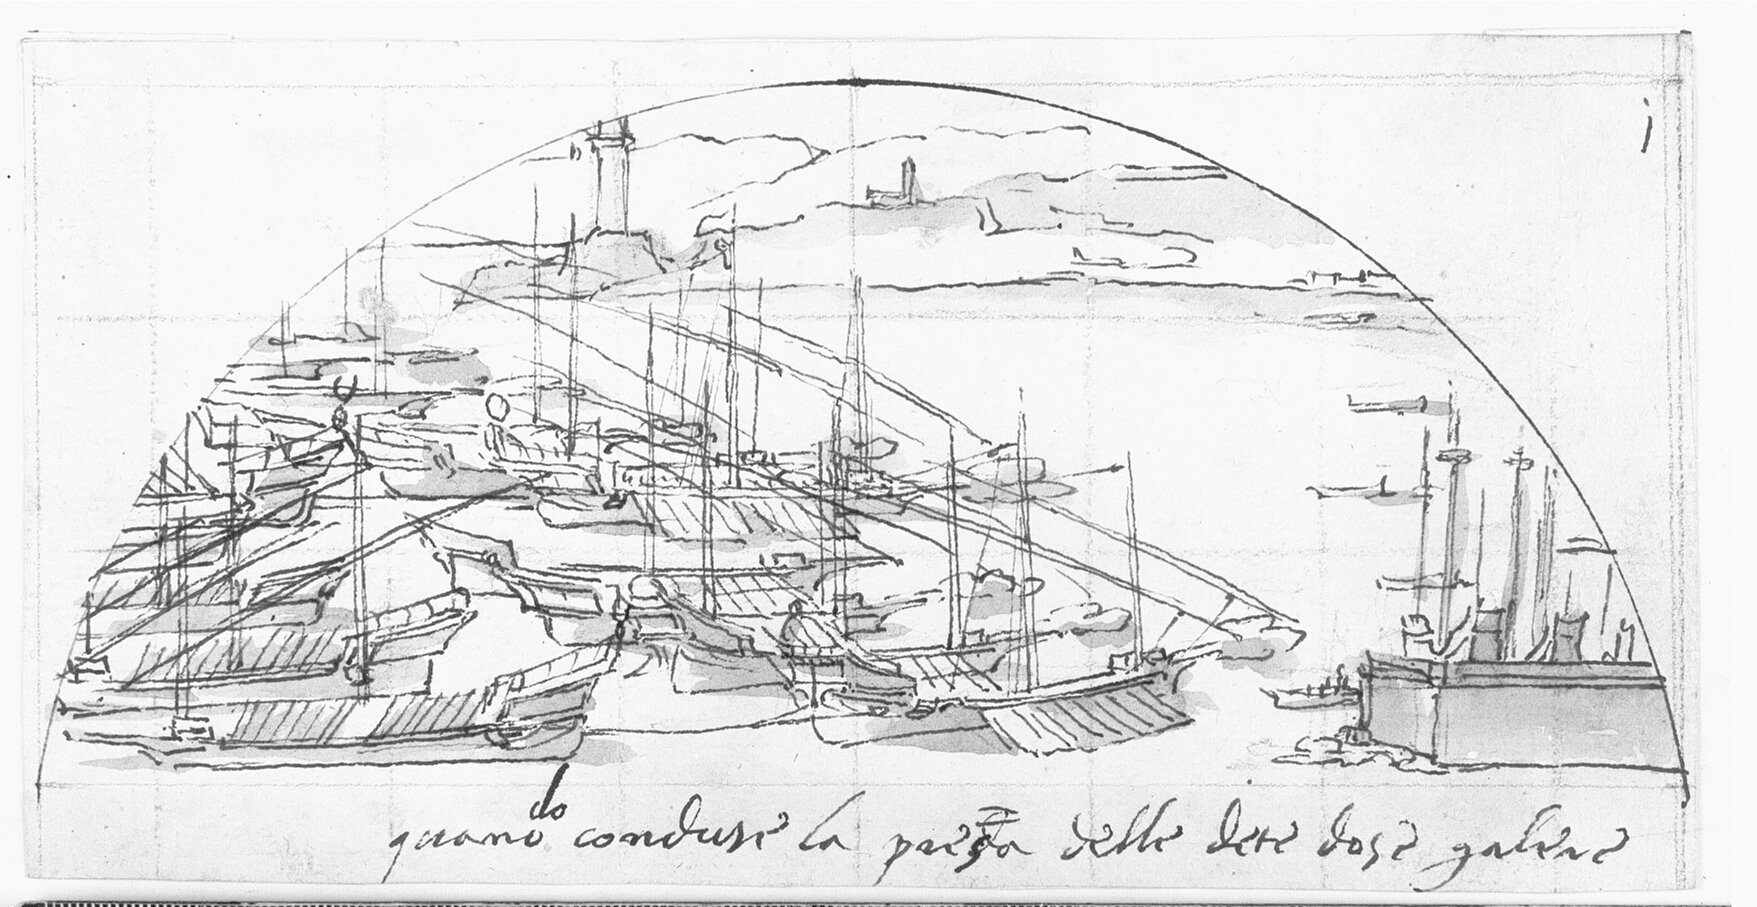 i
quando conduse la presa delle dete dose galere